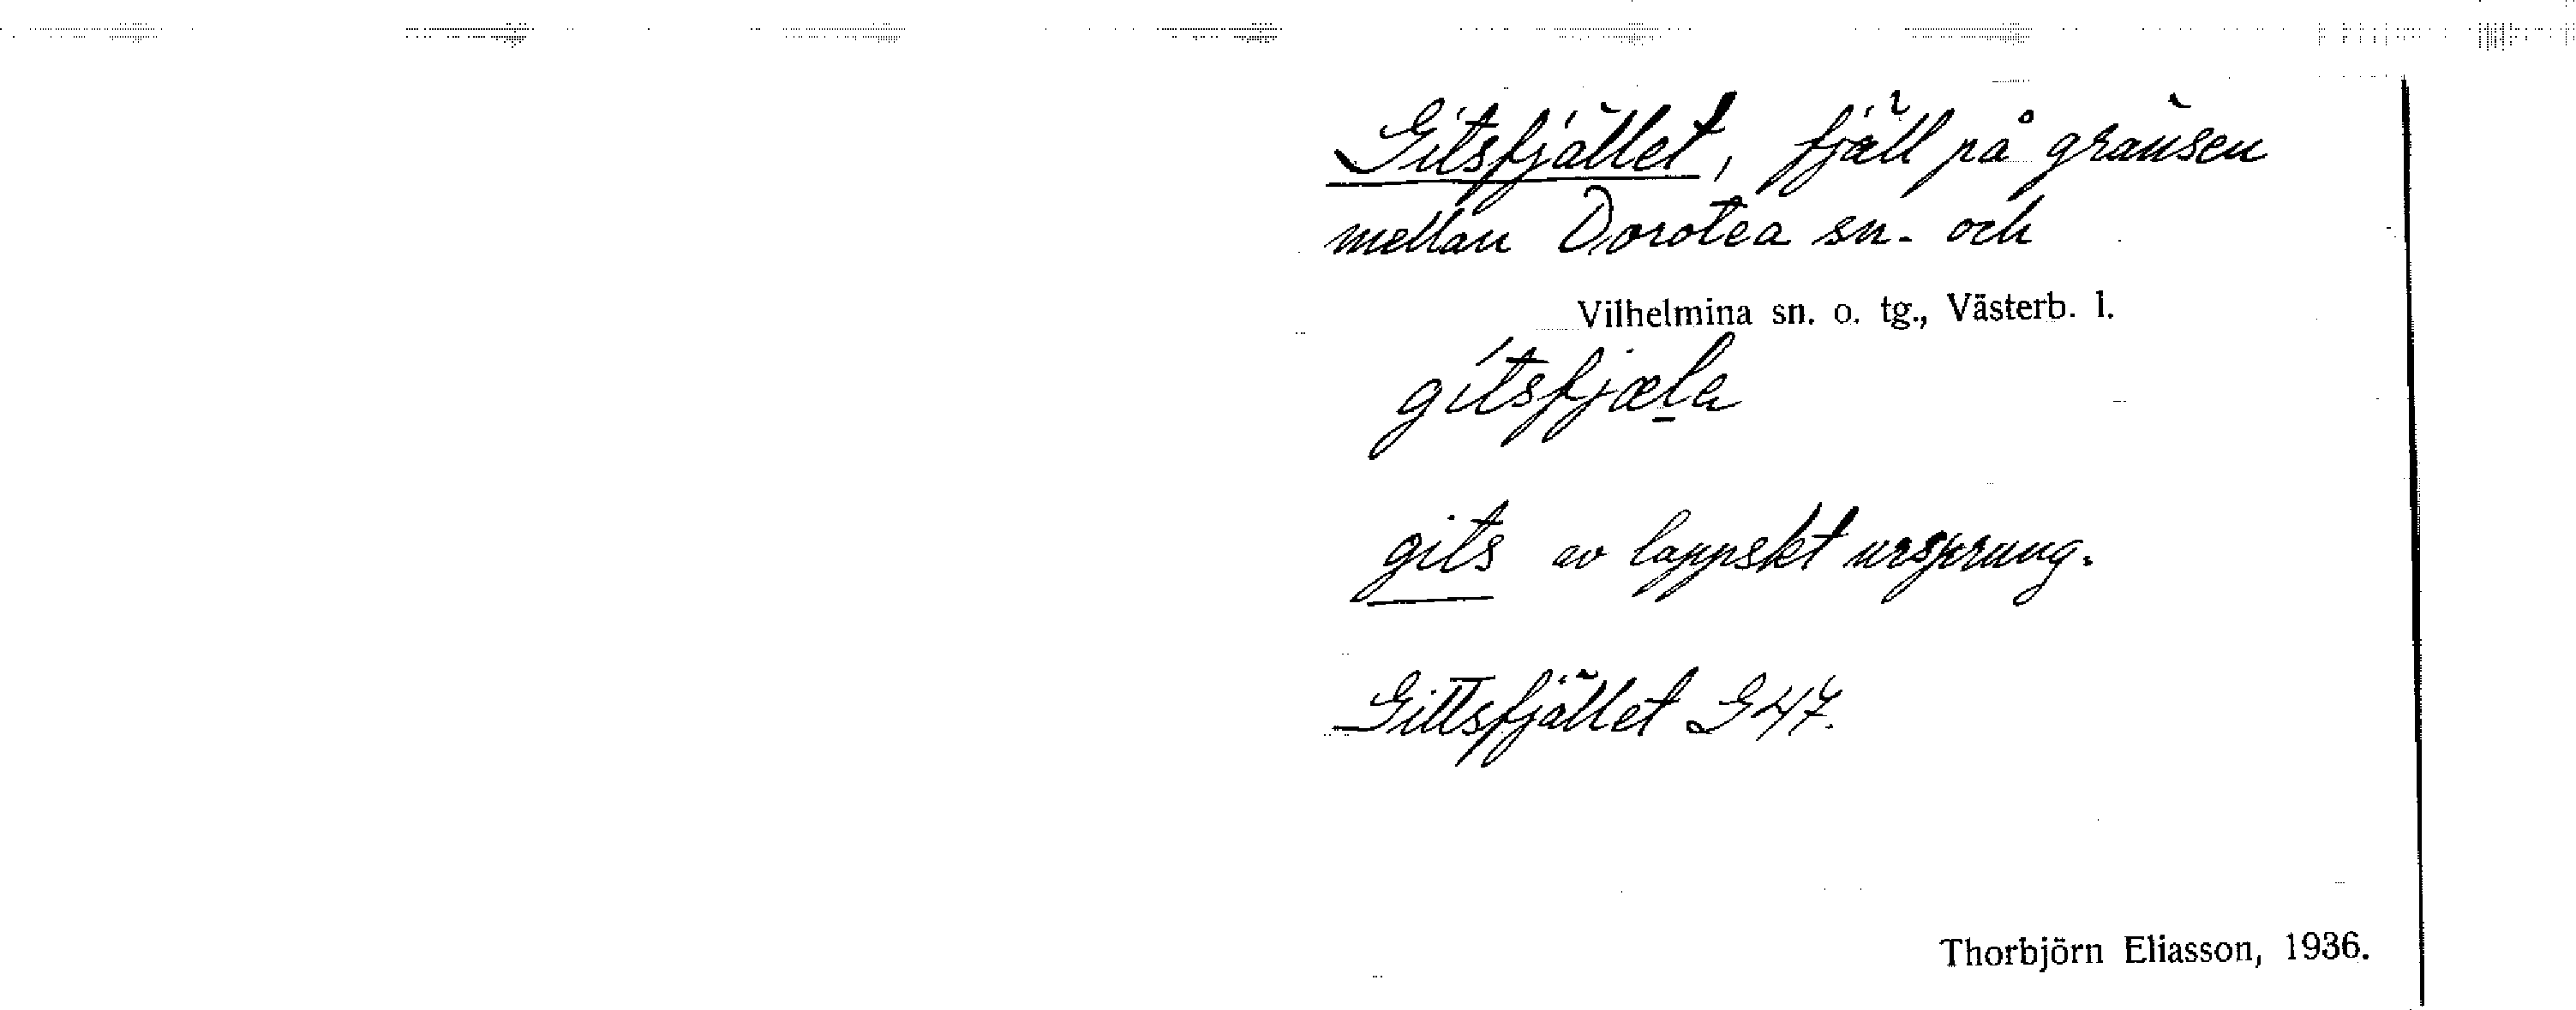 Gitsfjället, fjäll på gränsen
mellan Dorotea sn. och
Vilhelmina sn. o. tg., Västerb. l.
gítsfjæla
gits av lappskt ursprung.
Gittsfjället G47.
Thorbjörn Eliasson, 1936.